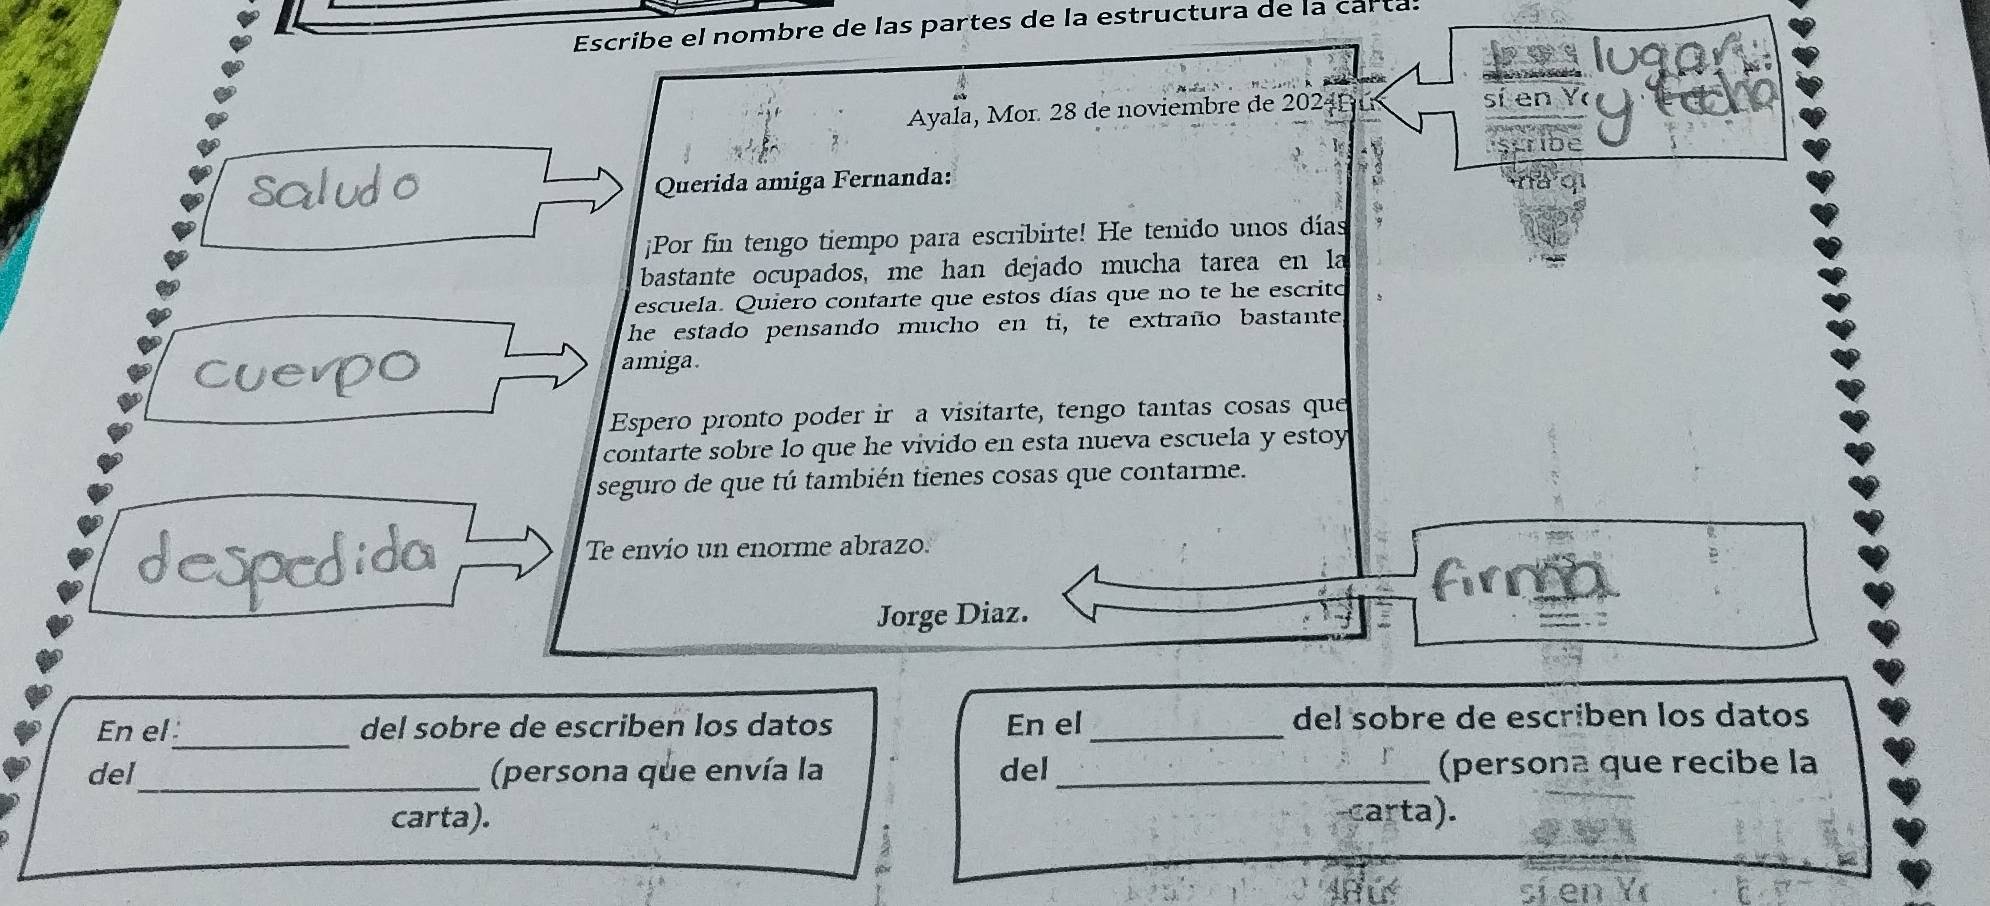 Escribe el nombre de las partes de la estructura de la carta:
lugar
y fecha
Ayala, Mor. 28 de noviembre de 2024
saludo
Querida amiga Fernanda:
¡Por fin tengo tiempo para escribirte! He tenido unos días
bastante ocupados, me han dejado mucha tarea en la
escuela. Quiero contarte que estos días que no te he escrito
he estado pensando mucho en ti, te extraño bastante
amiga.
cuerpo
Espero pronto poder ir a visitarte, tengo tantas cosas que
contarte sobre lo que he vivido en esta nueva escuela y estoy
seguro de que tú también tienes cosas que contarme.
despedida
Te envío un enorme abrazo.
firma
Jorge Diaz.
En el:____________ del sobre de escriben los datos
del______________________ (persona que envía la
carta).
En el ____________ del sobre de escriben los datos
del ______________________ (persona que recibe la
carta).
sí en